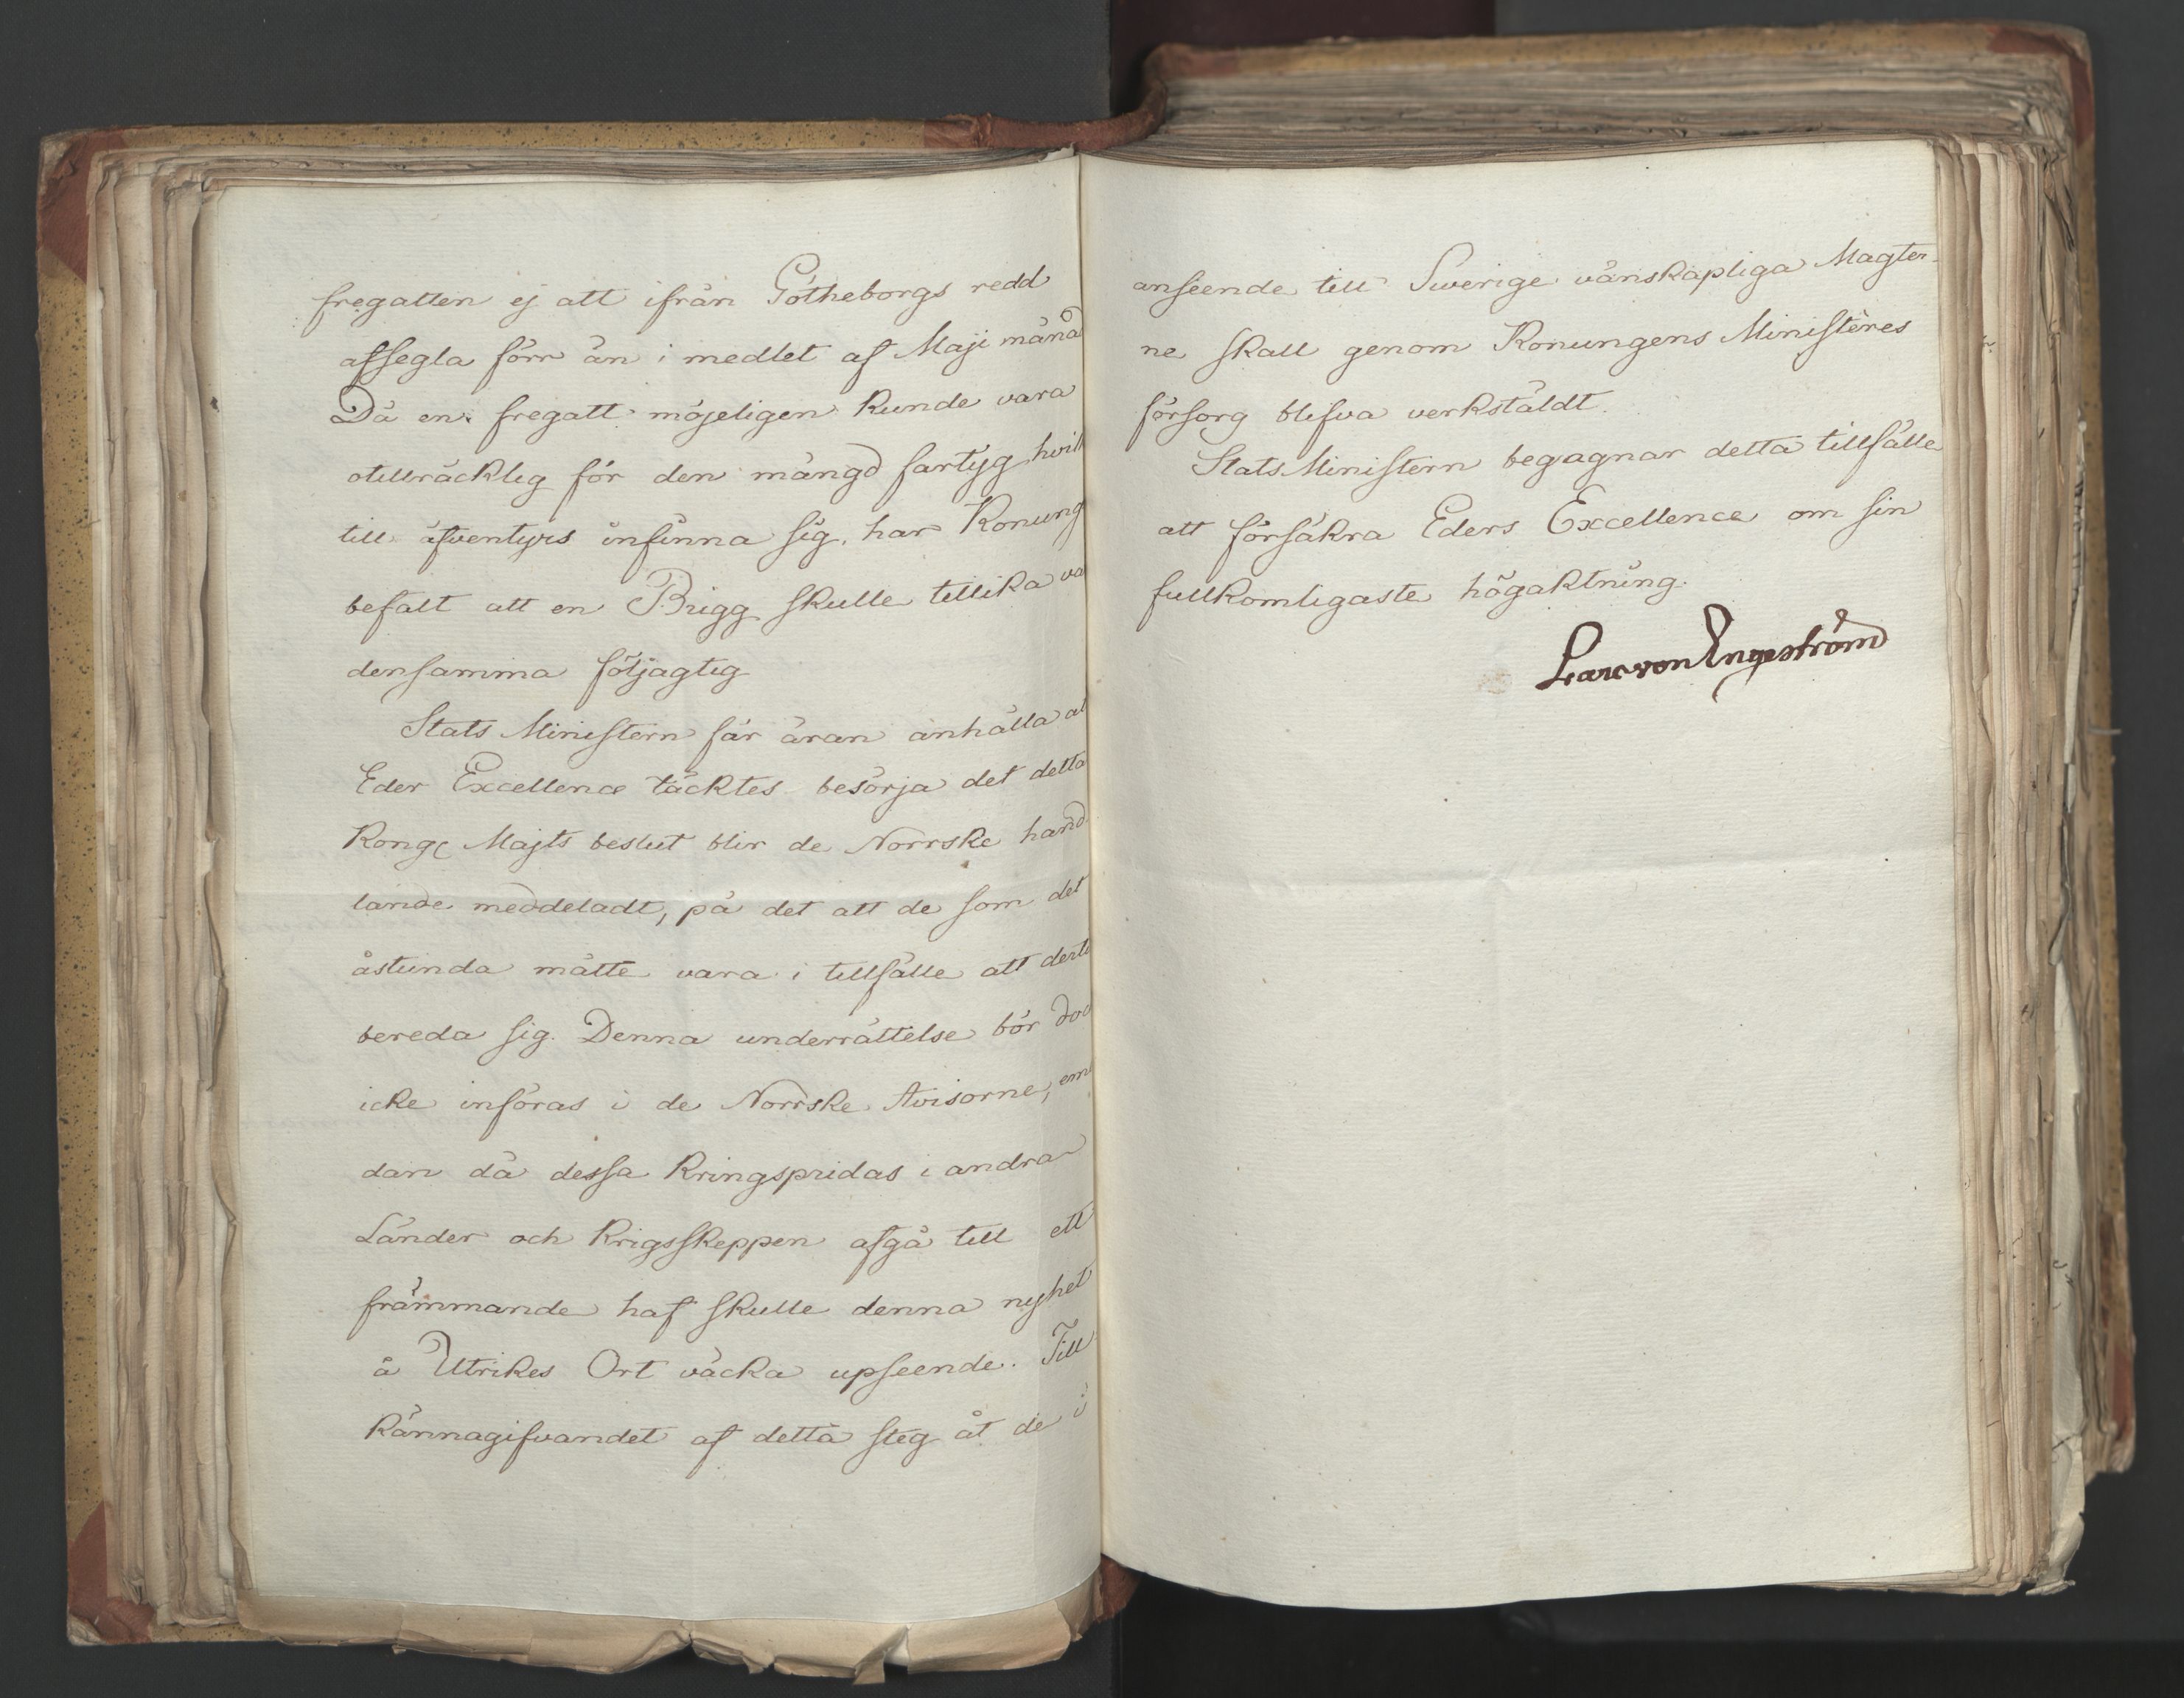 fregatten ej att ifrån Götheborgs redd
afsegla förr än i medlet af Maji månad
Då en fregatt möjeligen kunde vara
otillräcklig för den mängd fartyg hvilk
till äfventyrs infinna sig, har Konung
befalt att en Brigg skulle tillika va
densamma följagtig
Stats Ministern får äran anhålla at
Eder Excellence täcktes besörja det detta
Kongl Majts beslut blir de Norrske hand
lande meddeladt, på det att de som det
åstunda måtte vara i tillfälle att derti
bereda sig. Denna underrättelse bör doc
icke införas i de Norrske Avisorne, em
dan då dessa kringspridas i andra
Länder och krigsskeppen afgå till ett
främmande haf skulle denna nyhet
å Utrikes Ort väcka upseende. Till
kännagifvandet af detta steg åt de i
anseende till Swerige vänskapliga Magter
ne skall genom Konungens Ministères
försorg blifva verkstäldt.
Stats Ministern begagnar detta tillfälle
att försäkra Eders Excellence om sin
fullkomligaste högaktning.
Lars von Engeström